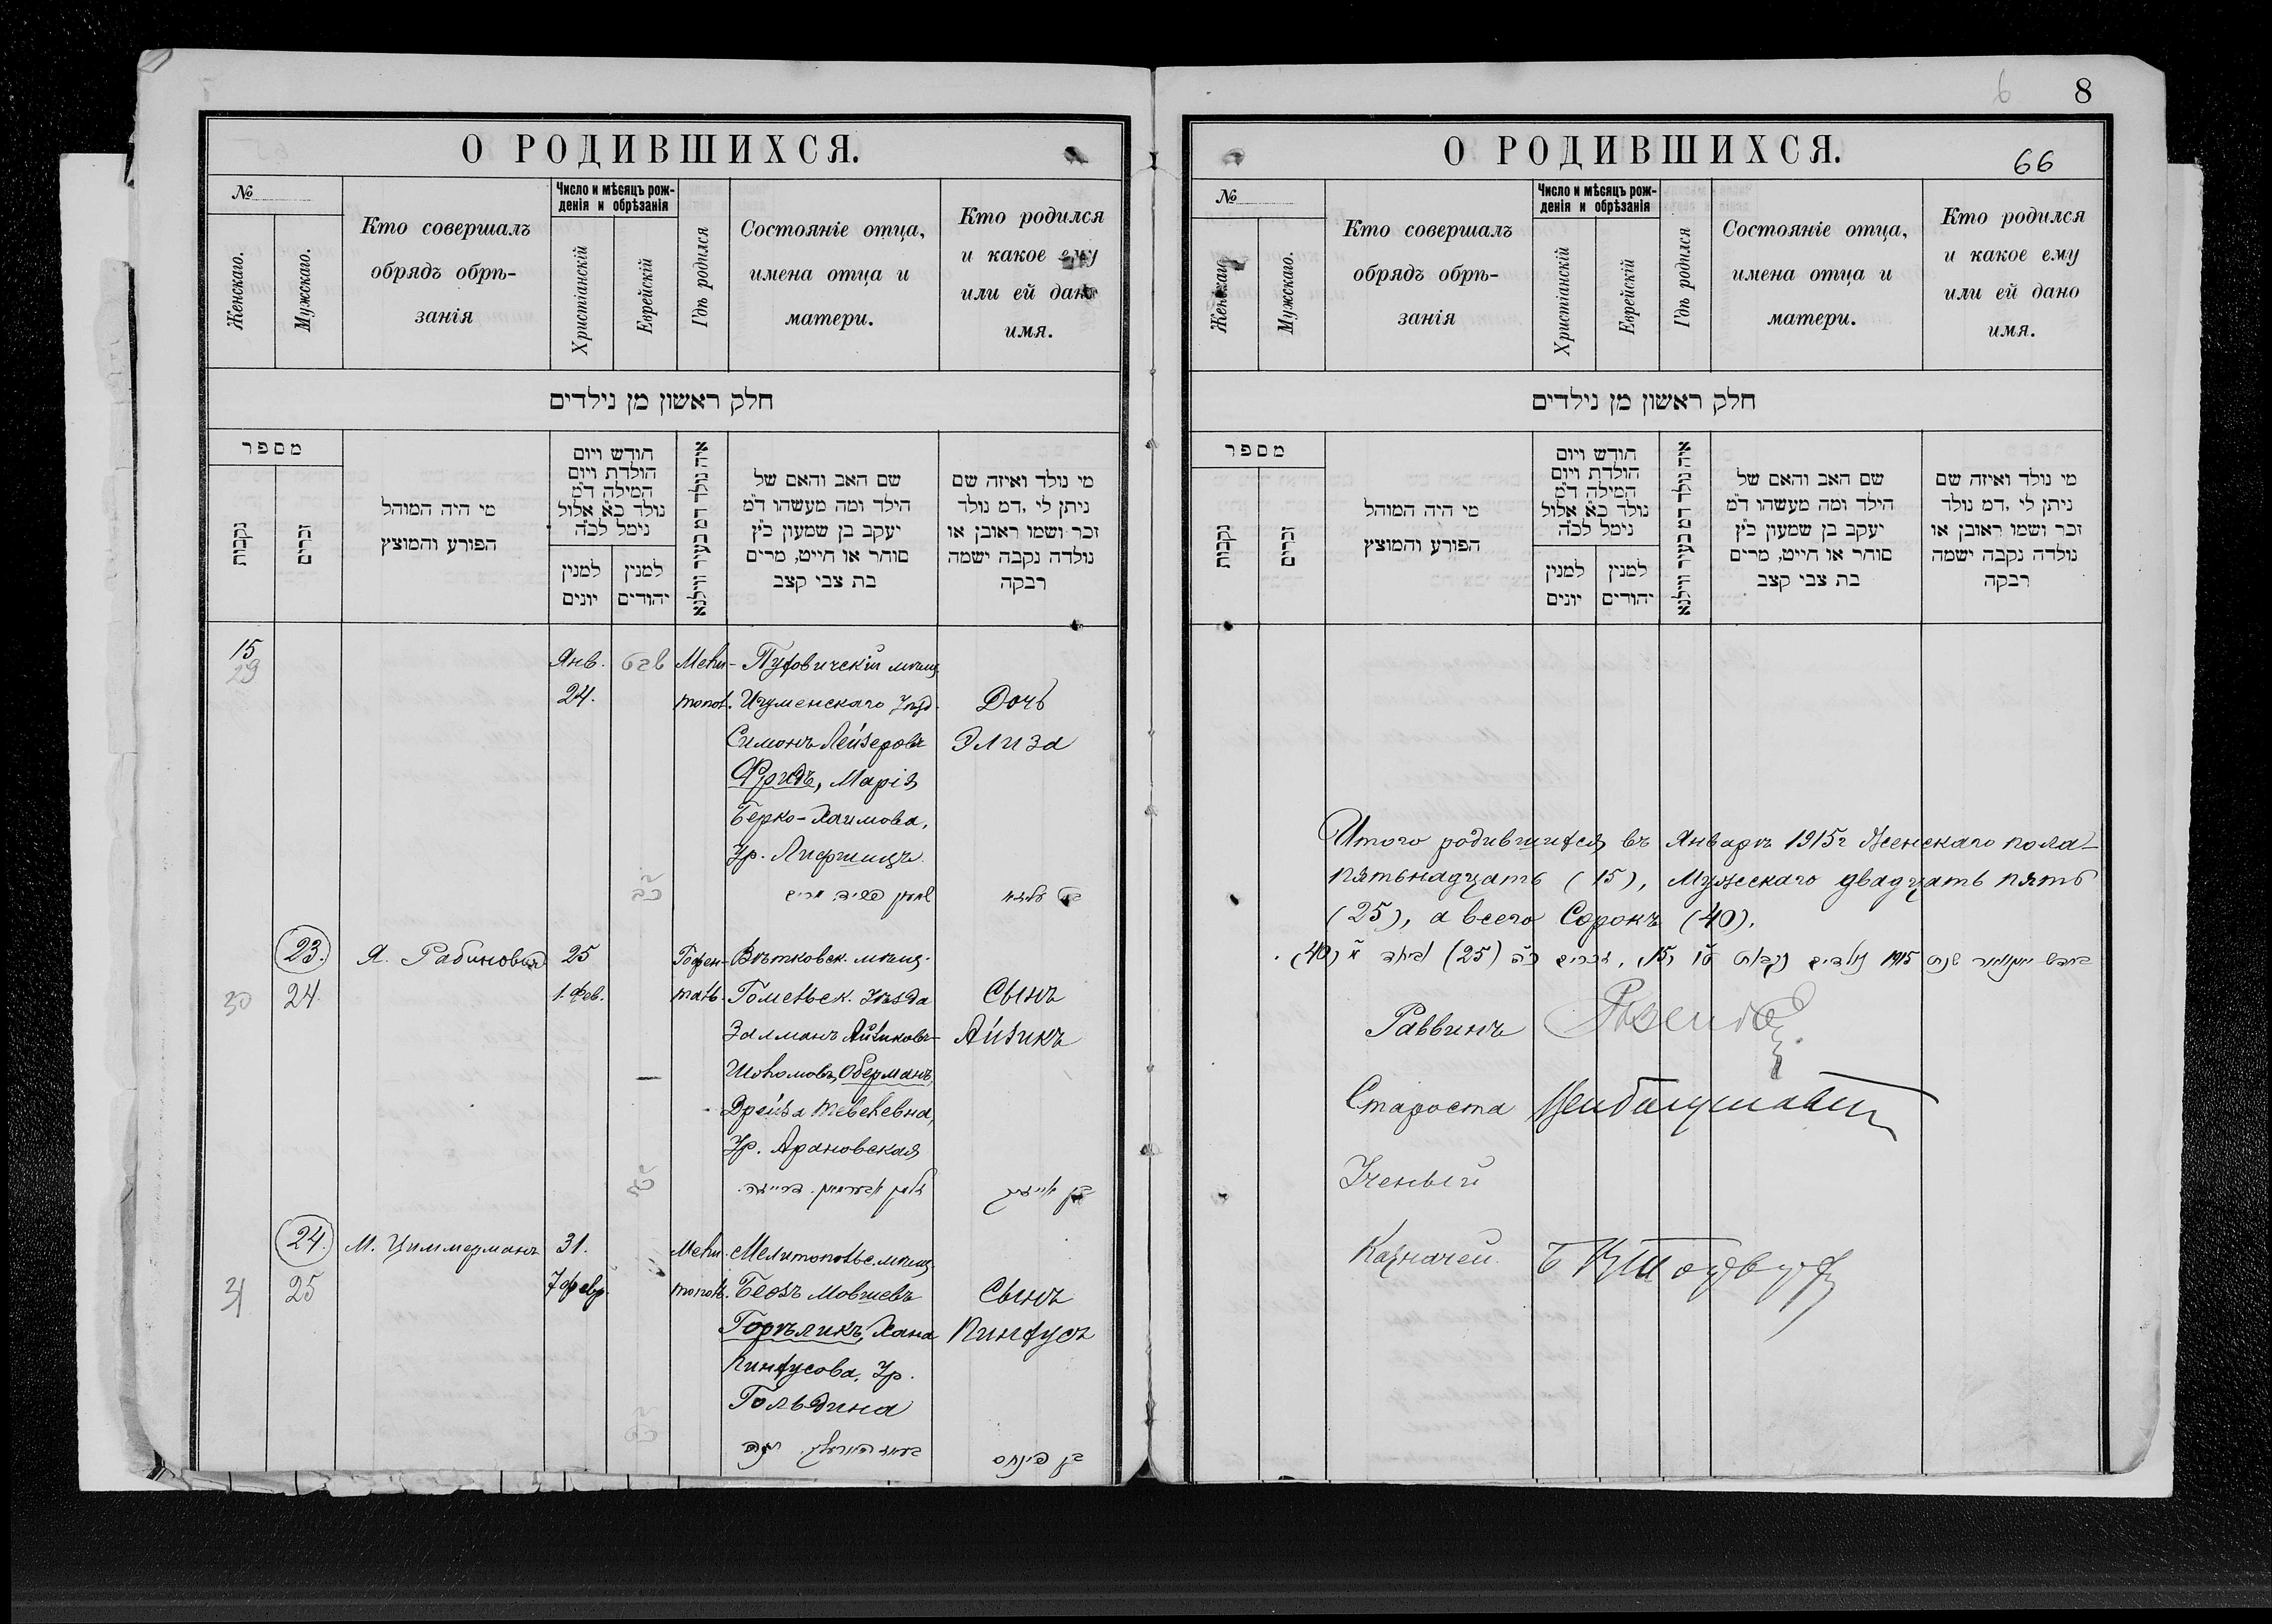 О РОДИВШИХСЯ.
№
Женскаго.
Мужскаго.
Кто совершалъ
обрядъ обрѣ-
занія
Число и мѣсяцъ рож-
денія и обрѣзанія
Христіанскій
Еврейскій
Гдѣ родился
Состояніе отца,
имена отца и
матери.
Кто родился
и какое ему
или ей дано
имя.
חלק ראשון מן נילדים
מספר
נקבות
זכרים
מי היה המוהל
הפורע והמוצץ
חודש ויום
הולדת ויום
המילה ד״מ
נולד כ״א אלול
נימל לכ״ה
למנין
יונים
למנין
יהודים
איה נולד דמ בעיר ווילנא
שם האב והאם של
הילד ומה מעשהו ד״מ
יעקב בן שמעון כ״ץ
סוחר או חייט, מרים
בת צבי קצב
מי נולד ואיזה שם
ניתן לי, דמ נולד
זכר ושמו ראובן או
נולדה נקבה ישמה
רבקה
15
29
Янв.
24.
שבט
Мели-
топол.
Пуховичскій мѣщ.
Игуменскаго Уѣзд.
Симонъ Лейзеровъ
Фридъ, Марія
Берко-Хаимова,
Ур. Лифшицъ
Дочь
Элиза
23.
24
30
Я. Рабиновичъ
25
1. Фев.
Вѣтковск. мѣщ.
Гомельск. Уѣзда
Залманъ Айзиковъ-
Шоломовъ Оберманъ,
Дрейза Тевелевна,
Ур. Арановская
Сынъ
Айзикъ
24.
25
31
М. Циммерманъ
31.
7 февр.
Мели-
топол.
Мелитопольс. мѣщ.
Мовшевъ
Горѣликъ, Хана
Пинхусова, Ур.
Гольдина
Сынъ
Пинхусъ
בן פינחס
6
8
О РОДИВШИХСЯ.
66
№
Женскаго
Мужскаго.
Кто совершалъ
обрядъ обрѣ-
занія
Число и мѣсяцъ рож-
денія и обрѣзанія
Христіанскій
Еврейскій
Гдѣ родился
Состояніе отца,
имена отца и
матери.
Кто родился
и какое ему
или ей дано
имя.
חלק ראשון מן נילדים
מספר
נקבות
זכרים
מי היה המוהל
הפורע והמוצץ
חודש ויום
הולדת ויום
המילה ד״מ
נולד כ״א אלול
נימל לכ״ה
למנין
יונים
למנין
יהודים
איה נולד דמ בעיר ווילנא
שם האב והאם של
הילד ומה מעשהו ד״מ
יעקב בן שמעון כ״ץ
סוחר או חייט, מרים
בת צבי קצב
מי נולד ואיזה שם
ניתן לי, דמ נולד
זכר ושמו ראובן או
נולדה נקבה ישמה
רבקה
Итого родившихся въ Январѣ 1915г Женскаго пола-
пятьнадцать (15), Мужескаго двадцать пять
(25), а всего Сорокъ (40).
בחדש יאנואר שנת 1915 נולדים נקבות ט״ו (15), זכרים כ״ה (25) מ׳ (40).
Раввинъ
Староста
Ученый
Казначей